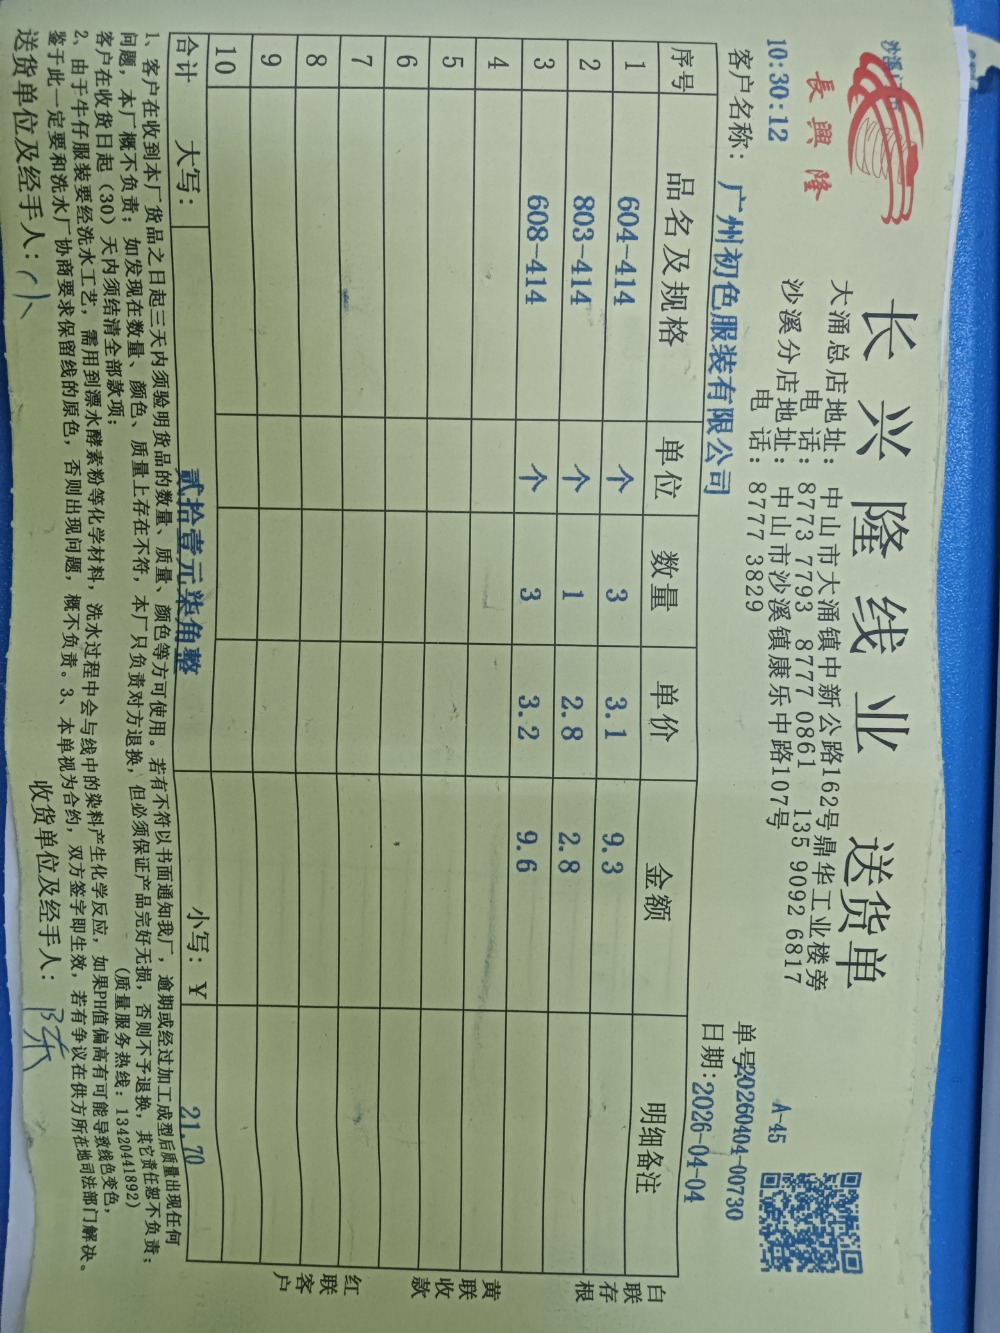 長興隆
长兴隆线业 送货单
大涌总店地址：中山市大涌镇中新公路162号鼎华工业楼旁
电 话：8773 7793 8777 0861 135 9092 6817
沙溪分店地址：中山市沙溪镇康乐中路107号
电 话：8777 3829
10:30:12
A-45
单号:20260404-00730
客户名称：广州初色服装有限公司
日期:2026-04-04
序号 品名及规格 单位 数量 单价 金额 明细备注
1 604-414 个 3 3.1 9.3
2 803-414 个 1 2.8 2.8
3 608-414 个 3 3.2 9.6
4
5
6
7
8
9
10
合计 大写： 贰拾壹元柒角整 小写：￥ 21.70
白联存根
黄联收款
红联客户
1、客户在收到本厂货品之日起三天内须验明货品的数量、质量、颜色等方可使用。若有不符以书面通知我厂，逾期或经过加工成型后质量出现任何
问题，本厂概不负责；如发现在数量、颜色、质量上存在不符，本厂只负责对方退换，但必须保证产品完好无损，否则不予退换，其它责任恕不负责；
客户在收货日起（30）天内须结清全部款项； (质量服务热线：13420441892)
2、由于牛仔服装要经洗水工艺，需用到漂水酵素粉等化学材料，洗水过程中会与线中的染料产生化学反应，如果PH值偏高有可能导致线色变色，
鉴于此一定要和洗水厂协商要求保留线的原色，否则出现问题，概不负责。3、本单视为合约，双方签字即生效，若有争议在供方所在地司法部门解决。
送货单位及经手人： 收货单位及经手人：